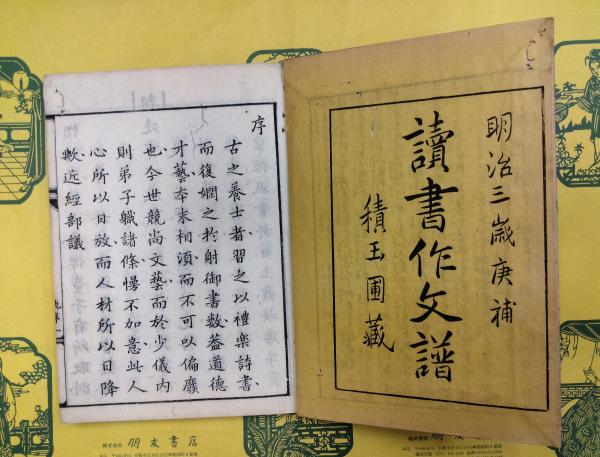 明治三歳庚補
讀書作文譜
積玉圃藏
序
古之養士者習之以禮樂詩書
而復嫻之於射御書數蓋道德
才藝本末相須而不可以偏廢
也今世競尚文藝而於少儀内
則弟子職諸條慢不加意此人
心所以日放而人材所以日降
歟近經部議
株式会社 朋友書店
株式会社 朋友書店